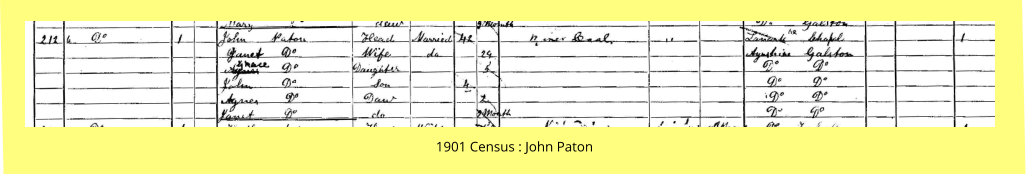 Mary Do Daur 9 Month Do Galston
212 Do 1 John Paton Head Married 42 Miner Coal " Lanark Chapel 1
Janet Do Wife do 29 Ayrshire Galston
Grace Do Daughter 5 Do Do
John Do Son 4 Do Do
Agnes Do Daur 2 Do Do
Janet Do do Month Do Do
1901 Census : John Paton